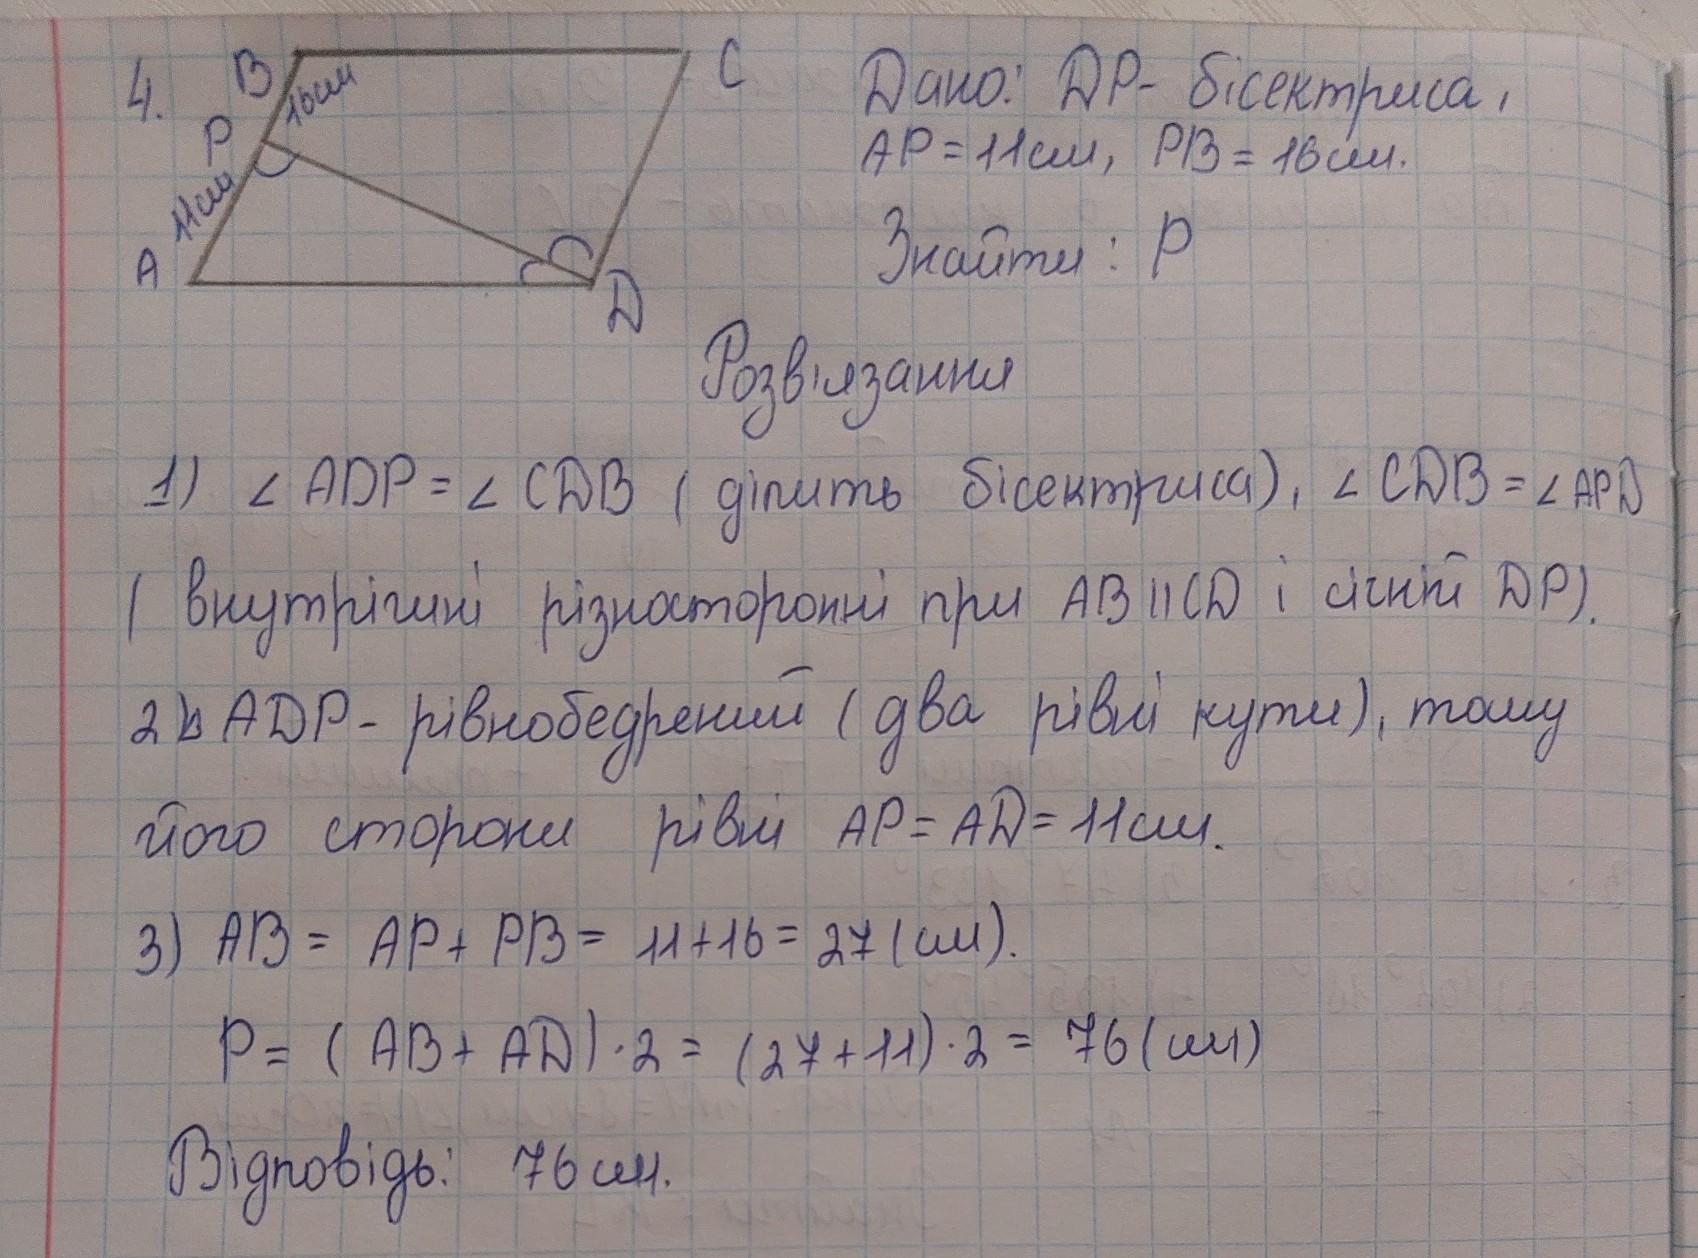 4. B 16см C Дано: DP- бісектриса,
P 11см AP = 11см, PB = 16см.
A D Знайти: P
Розв'язання
1) ∠ ADP = ∠ CDB ( ділить бісектриса), ∠ CDB = ∠ APD
( внутрішні різносторонні при AB || CD і січній DP).
2) ADP - рівнобедрений ( два рівні кути), тому
його сторони рівні AP = AD = 11см.
3) AB = AP + PB = 11+16 = 27 (см).
P = ( AB + AD ) · 2 = (27+11) · 2 = 76 (см)
Відповідь: 76 см.